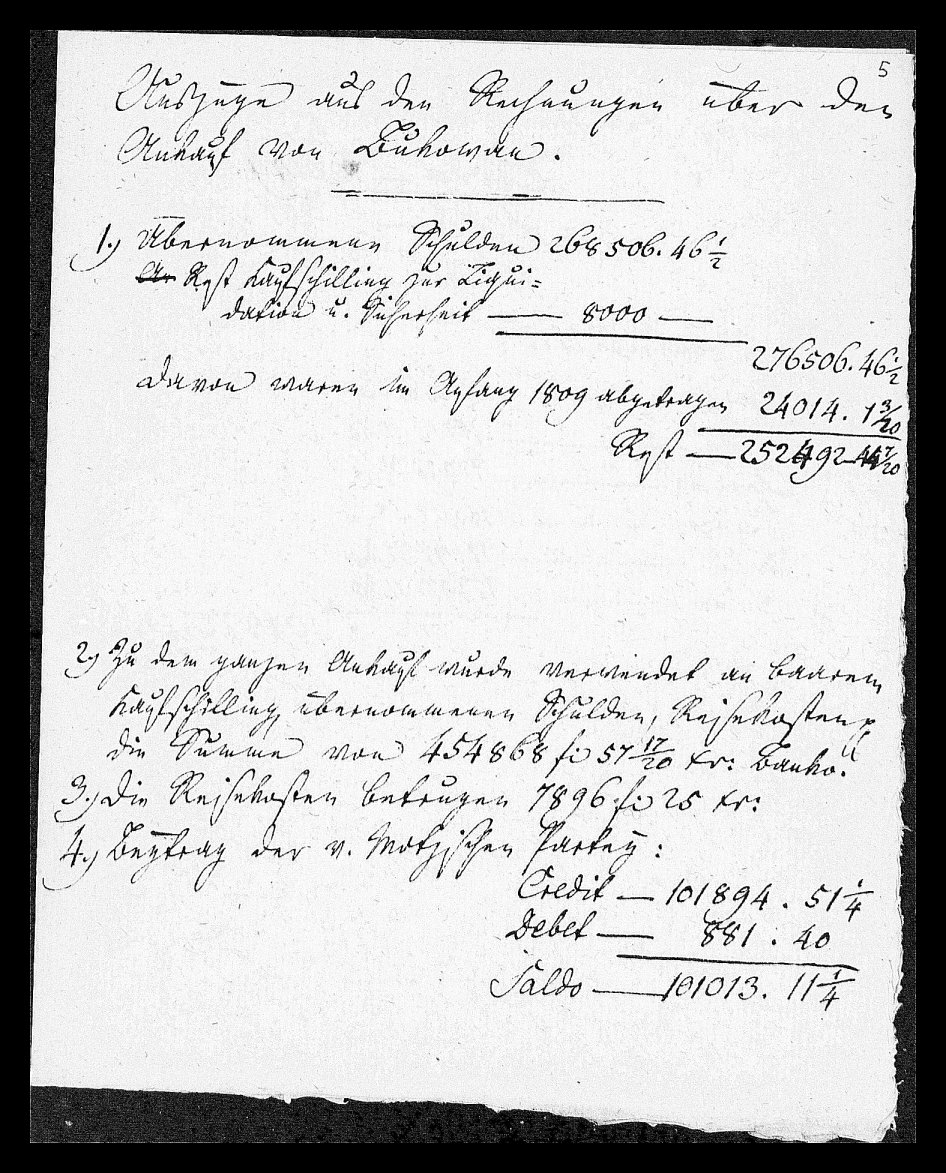 5
Auszüge aus den Rechnungen über den
Ankauf von Bukowan.
1.) Übernommene Schulden 268506. 46 1/2
Rest Kaufschilling zur Liqui=
dation u. Sicherheit — 8000 —
276506. 46 1/2
Davon waren im Anfang 1809 abgetragen 24014. 1 3/20
Rest — 252492 — 44 7/20
2.) Zu dem ganzen Ankauf wurde verwendet an baarem
Kaufschilling, übernommenen Schulden, Reisekosten
die Summe von 454868 f 57 17/20 kr: Banko.
3.) Die Reisekosten betrugen 7896 f 25 kr:
4.) Beytrag der v. Motzischen Partey:
Credit — 101894. 51 1/4
Debet — 881. 40
Saldo — 101013. 11 1/4